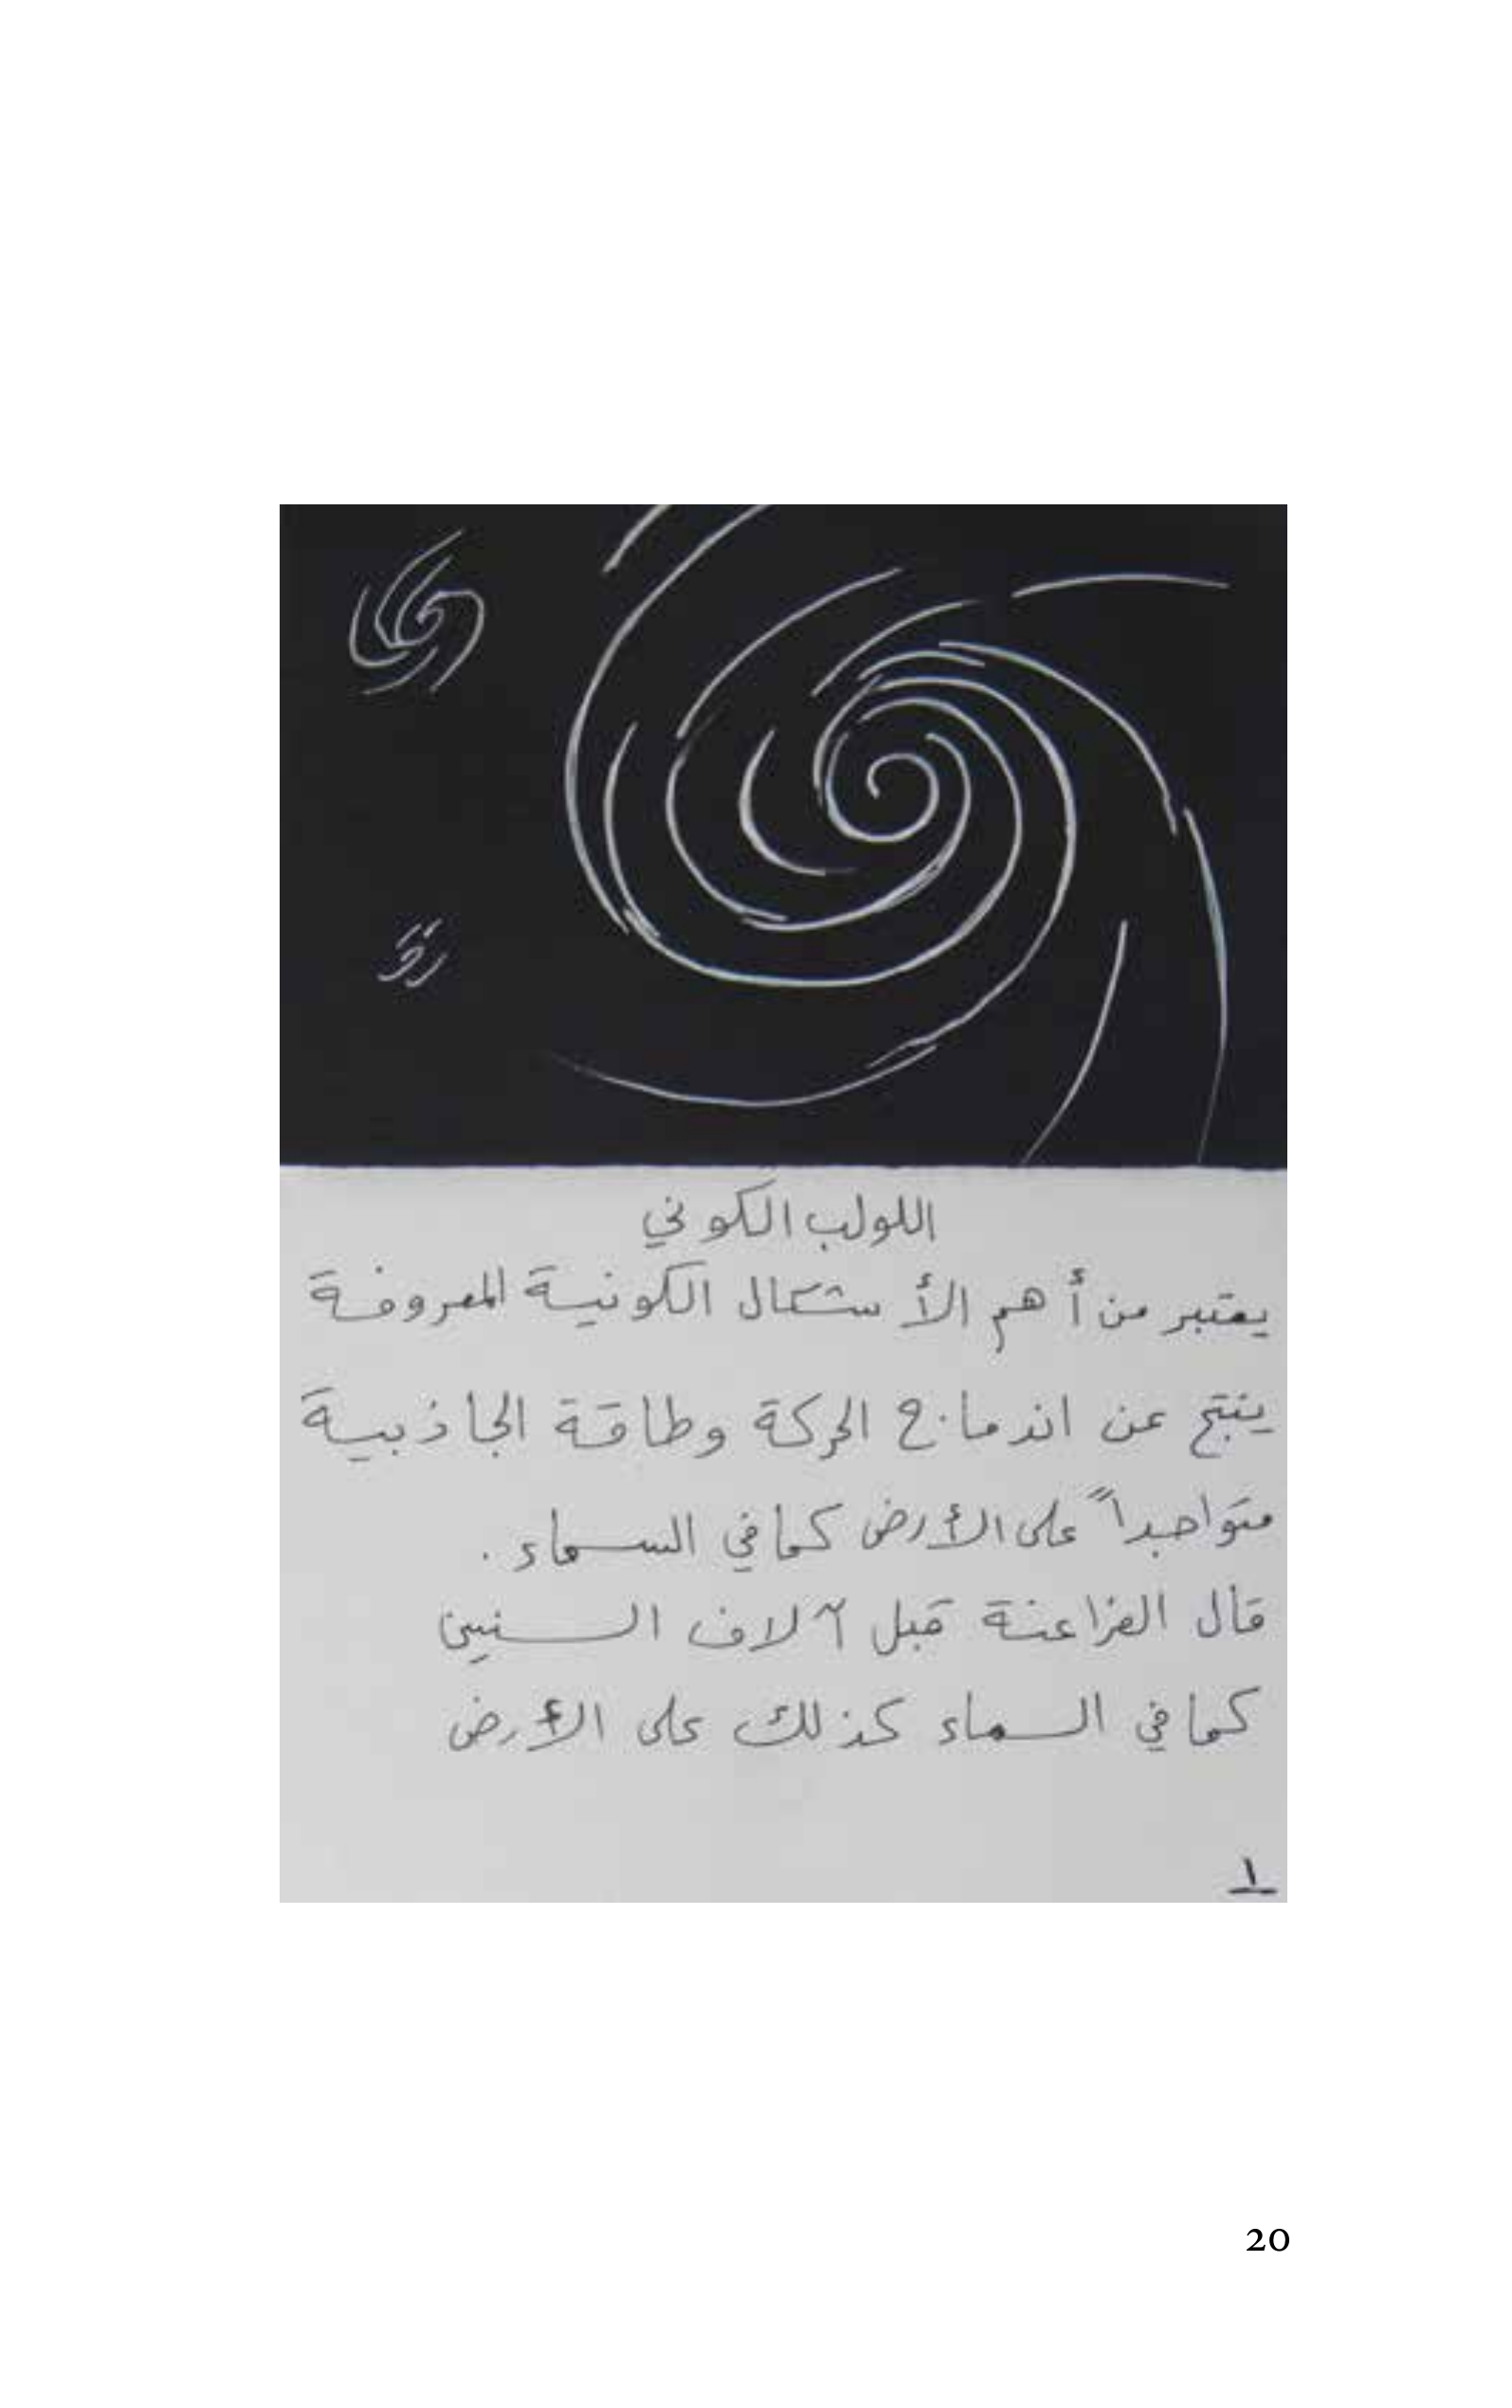 اللولب الكوني
يعتبر من أهم الأشكال الكونية المعروفة
ينتج عن اندماج الحركة وطاقة الجاذبية
متواجداً على الأرض كما في السماء .
قال الفراعنة قبل آلاف السنين
كما في السماء كذلك على الأرض
١
20